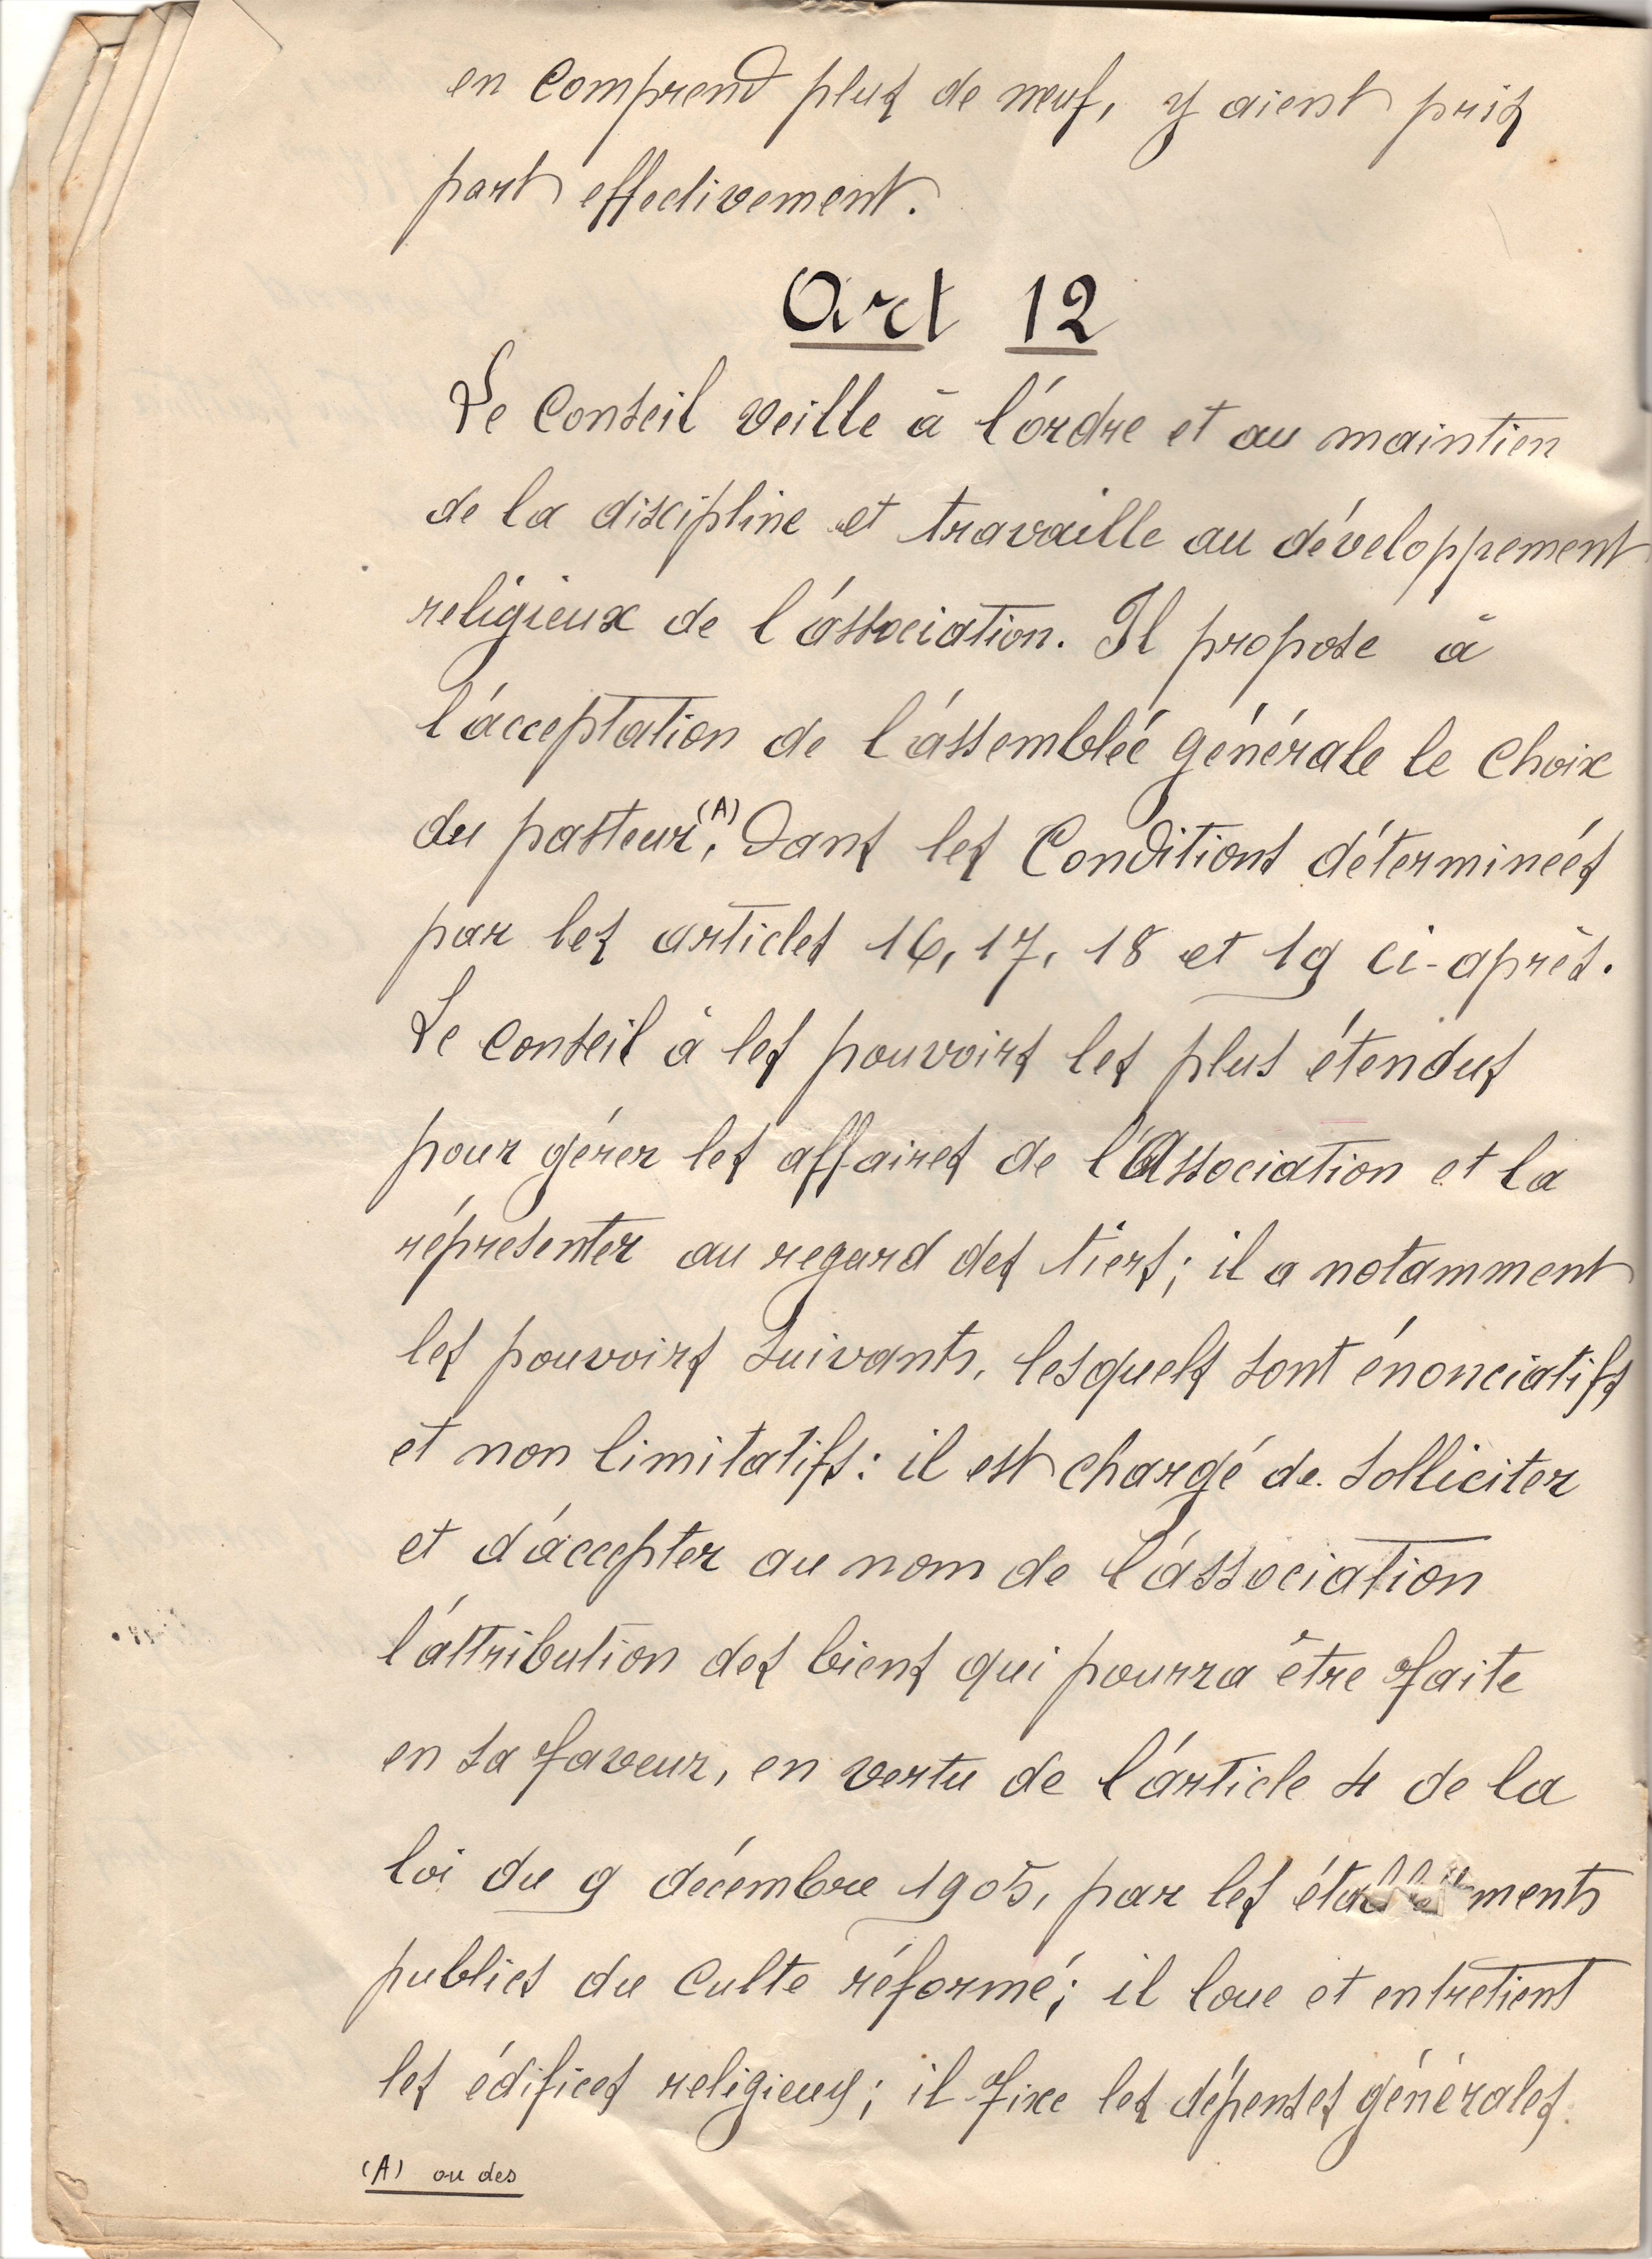 en comprend plus de neuf, y aient pris
part effectivement.
Art 12
Le Conseil veille à l'ordre et au maintien
de la discipline et travaille au développement
religieux de l'association. Il propose à
l'acceptation de l'assemblée générale le choix
du pasteur,(A) Dans les Conditions déterminées
par les articles 16, 17, 18 et 19 ci-après.
Le Conseil à les pouvoirs les plus étendus
pour gérer les affaires de l'Association et la
réprésenter au regard des tiers; il a notamment
les pouvoirs suivants, lesquels sont énonciatifs
et non limitatifs: il est chargé de solliciter
et d'accepter au nom de l'association
l'attribution des biens qui pourra être faite
en sa faveur, en vertu de l'article 4 de la
loi du 9 décembre 1905, par les établissements
publics du Culte réformé; il loue et entretient
les édifices religieux; il fixe les dépenses générales.
(A) ou des